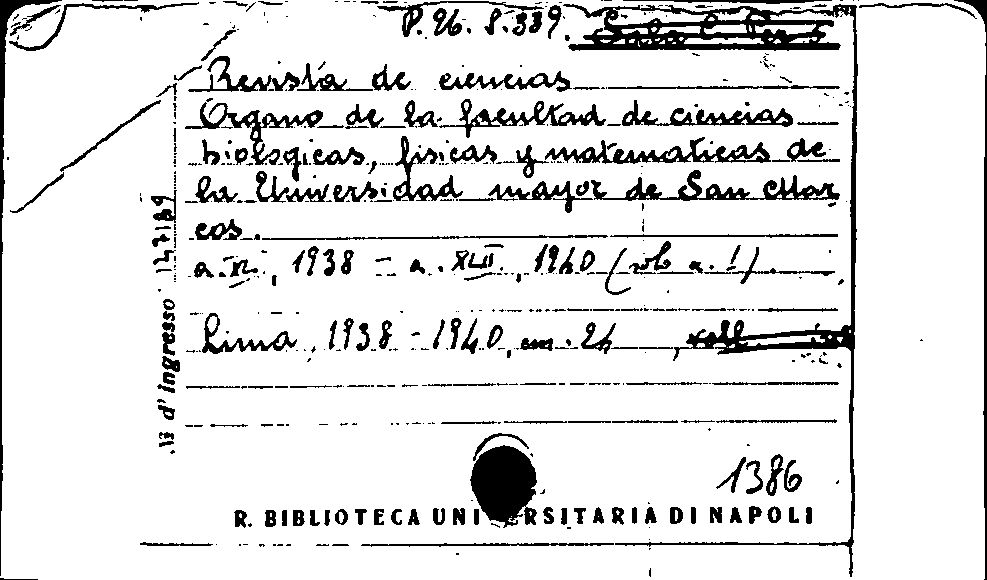 P. 26. 8. 339. Sala C. Per 5
Revista de ciencias
Organo de la facultad de ciencias
biologicas, fisicas y matematicas de
la Universidad mayor de San Mar
cos.
a. XL, 1938 - a. XLII, 1940 (vol. a. 1).
Lima, 1938 - 1940, cm. 24, voll.
1386
R. BIBLIOTECA UNIVERSITARIA DI NAPOLI
N d'ingresso 147189